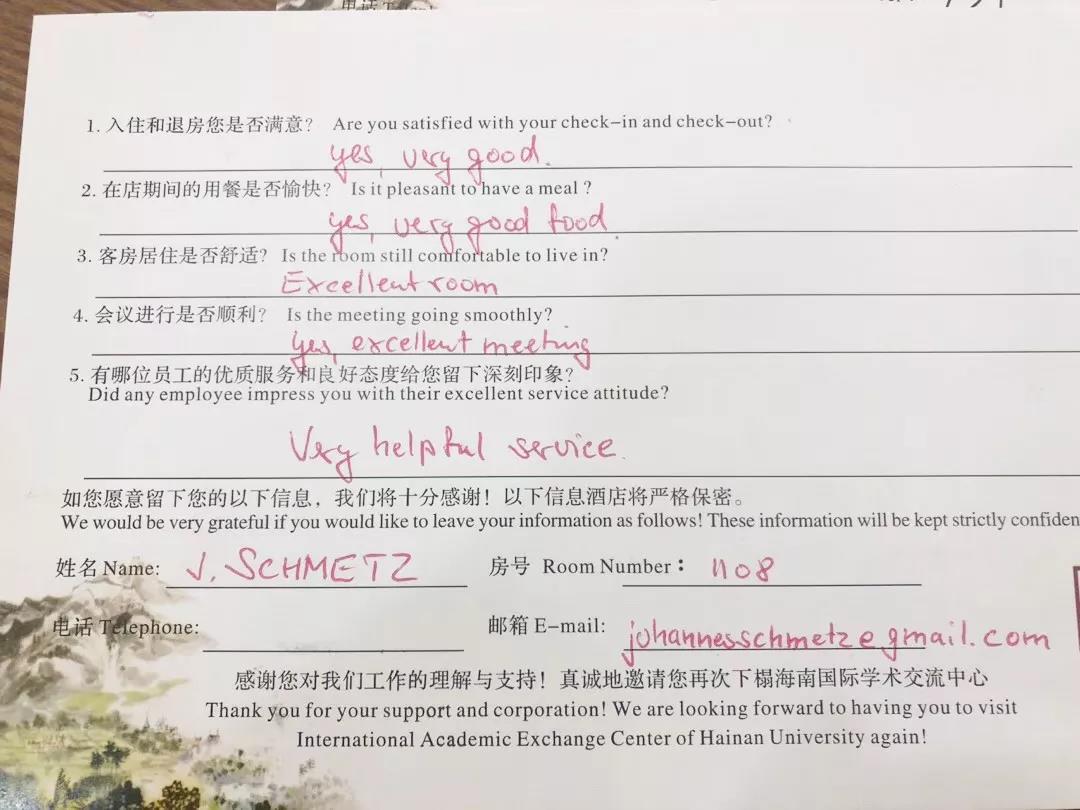 电话 Tele
1. 入住和退房您是否满意? Are you satisfied with your check-in and check-out?
yes, very good.
2. 在店期间的用餐是否愉快? Is it pleasant to have a meal ?
yes, very good food.
3. 客房居住是否舒适? Is the room still comfortable to live in?
Excellent room
4. 会议进行是否顺利? Is the meeting going smoothly?
yes, excellent meeting
5. 有哪位员工的优质服务和良好态度给您留下深刻印象?
Did any employee impress you with their excellent service attitude?
Very helpful service.
如您愿意留下您的以下信息，我们将十分感谢！以下信息酒店将严格保密。
We would be very grateful if you would like to leave your information as follows! These information will be kept strictly confiden
姓名 Name: J. SCHMETZ 房号 Room Number: 1108
电话 Telephone: 邮箱 E-mail: johannesschmetz@gmail.com
感谢您对我们工作的理解与支持！真诚地邀请您再次下榻海南国际学术交流中心
Thank you for your support and corporation! We are looking forward to having you to visit
International Academic Exchange Center of Hainan University again!